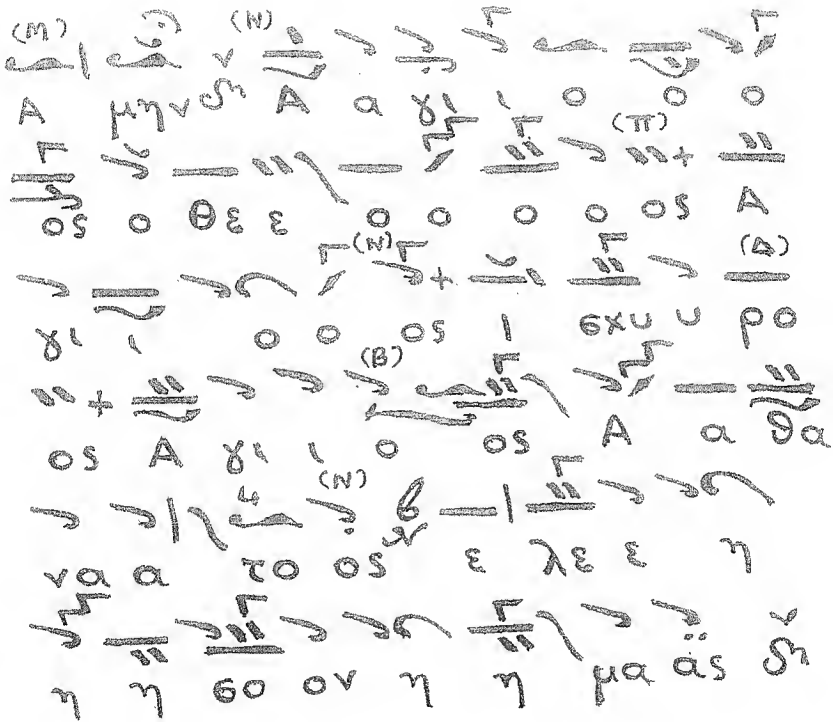 (Μ) (Ν)
Α μην Α α γι ι ο ο ο
(Π)
ος ο θε ε ο ο ο ο ος Α
(Ν) (Δ)
γι ι ο ο ος ι σχυ υ ρο
(Β)
ος Α γι ι ο ος Α α θα
(Ν)
να α το ος ε λε ε η
η η σο ον η η μα ας